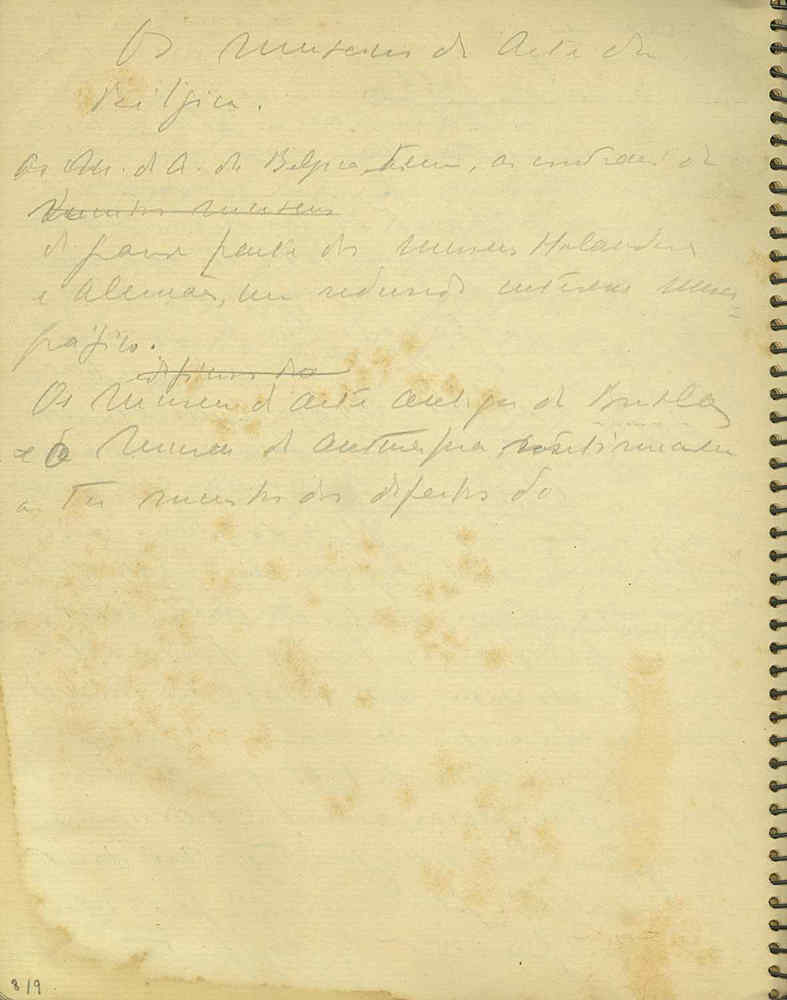 Os museus de Arte da
Belgica.
Os M. d A. da Belgica tem, ao contrario de
muitos museus
de grande parte dos museus Holandeses
e Alemães, um reduzido interesse museo=
gráfico.
Os Museus d'arte antiga de Bruxelas
e o Museu de Antuerpia,
defeitos do
8/9